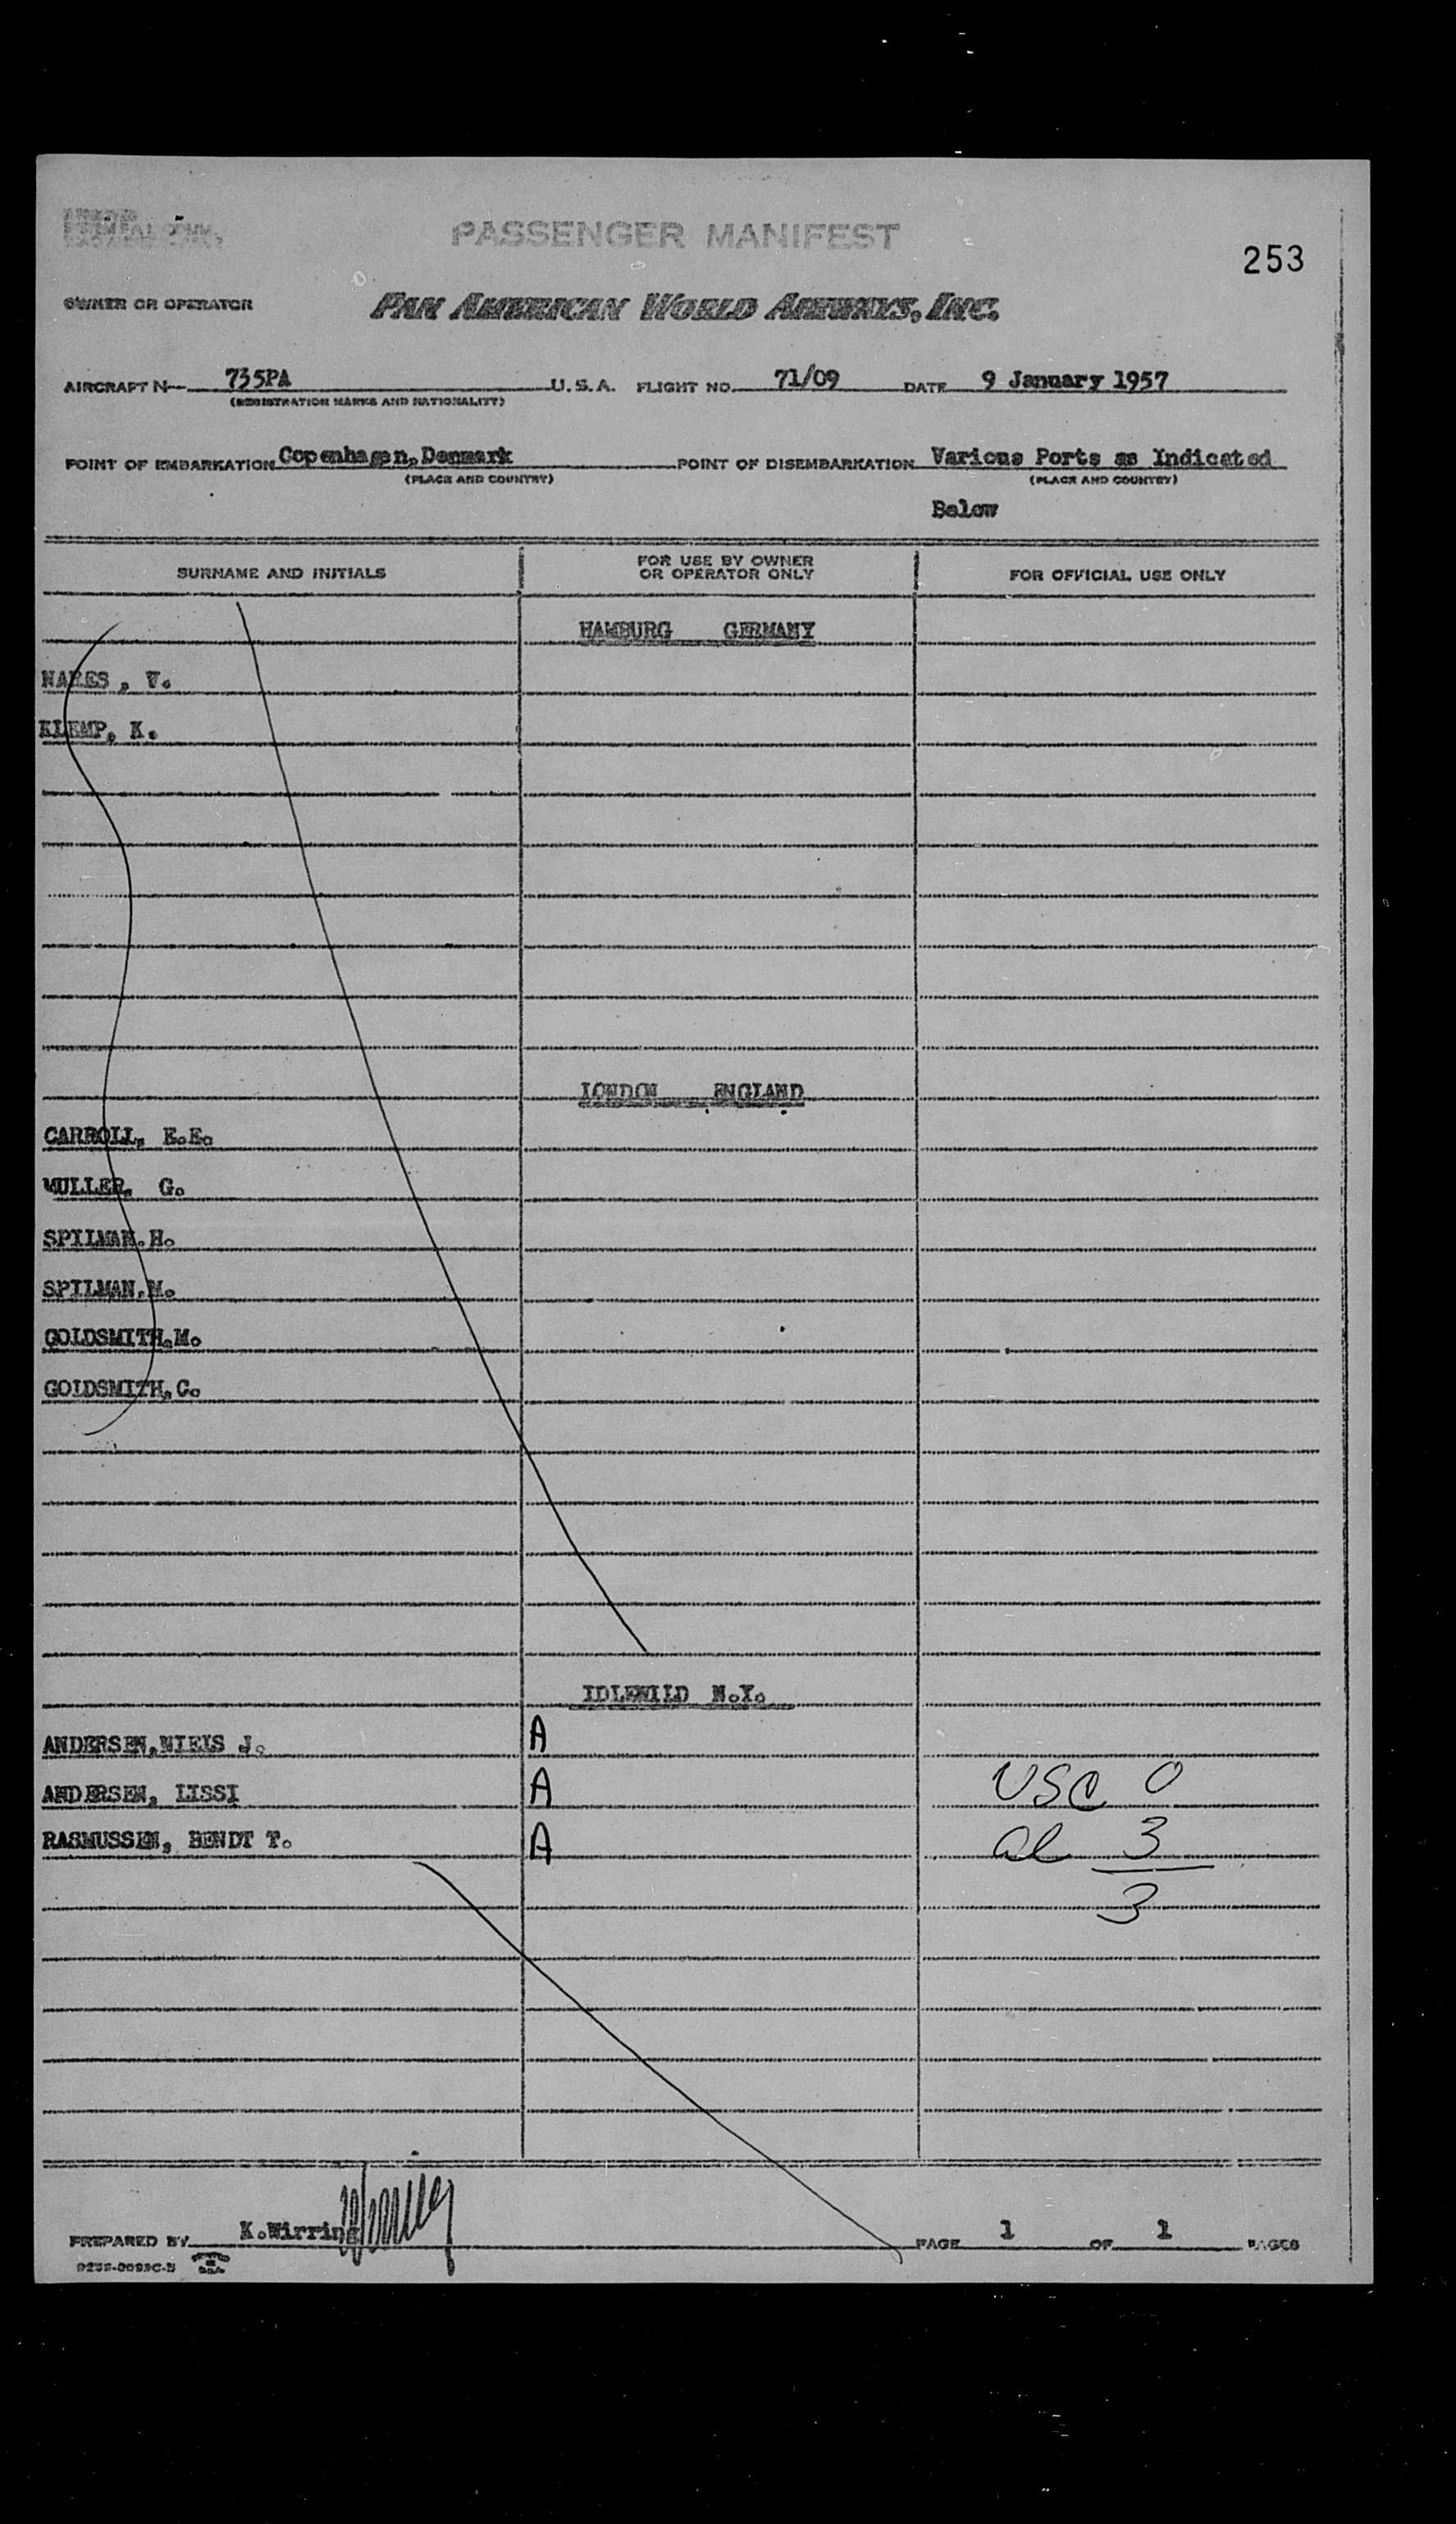 PASSENGER MANIFEST
253
OWNER OR OPERATOR PAN AMERICAN WORLD AIRWAYS, INC.
AIRCRAFT N— 735PA U.S.A. FLIGHT NO. 71/09 DATE 9 January 1957
(REGISTRATION MARKS AND NATIONALITY)
POINT OF EMBARKATION Copenhagen, Denmark POINT OF DISEMBARKATION Various Ports as Indicated
(PLACE AND COUNTRY) (PLACE AND COUNTRY)
Below
SURNAME AND INITIALS FOR USE BY OWNER OR OPERATOR ONLY FOR OFFICIAL USE ONLY
HAMBURG GERMANY
NARES , V.
KLEMP, K.
LONDON ENGLAND
CARROLL, E.E.
MULLER, G.
SPILMAN.H.
SPILMAN,M.
GOLDSMITH,M.
GOLDSMITH,C.
IDLEWILD N.Y.
ANDERSEN,NIELS J. A
ANDERSEN, LISSI A USC 0
RASMUSSEN, BENDT T. A al 3
3
PREPARED BY K.Wirring PAGE 1 OF 1 PAGES